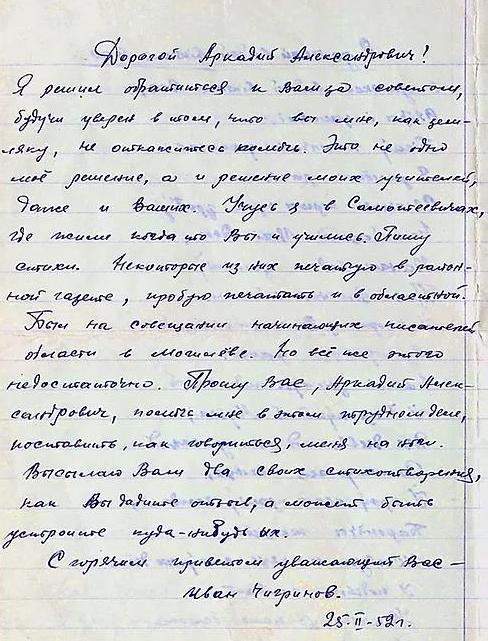 Дорогой Аркадий Александрович!
Я решил обратиться к Вам за советом,
будучи уверен в том, что вы мне, как зем-
ляку, не откажитесь помочь. Это не одно
моё решение, а и решение моих учителей,
даже и Ваших. Учусь я в Самотеевичах,
где жили когда-то Вы и учились. Пишу
стихи. Некоторые из них печатую в район-
ной газете, пробую печатать и в областной.
Был на совещании начинающих писателей
области в Могилёве. Но всё же этого
недостаточно. Прошу Вас, Аркадий Алек-
сандрович, помочь мне в этом трудном деле,
поставить, как говориться, меня на
Высылаю Вам два своих стихотворения,
как Вы дадите отзыв, а может быть
устроите куда-нибудь их.
С горячим приветом уважающий Вас –
Иван Чигринов.
25-II-52г.